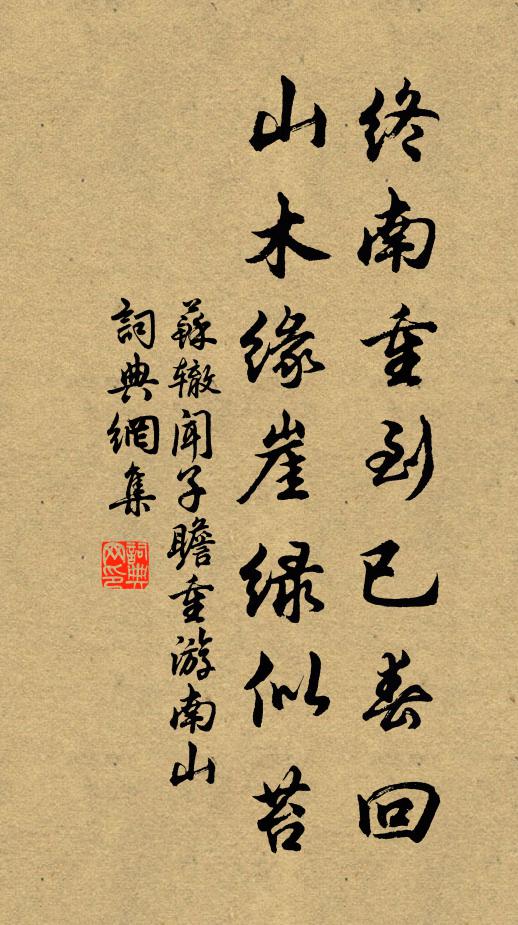 终南重到已春回
山木缘崖绿似苔
蘇辙闻子瞻重游南山
詞典網集
詞典
网印